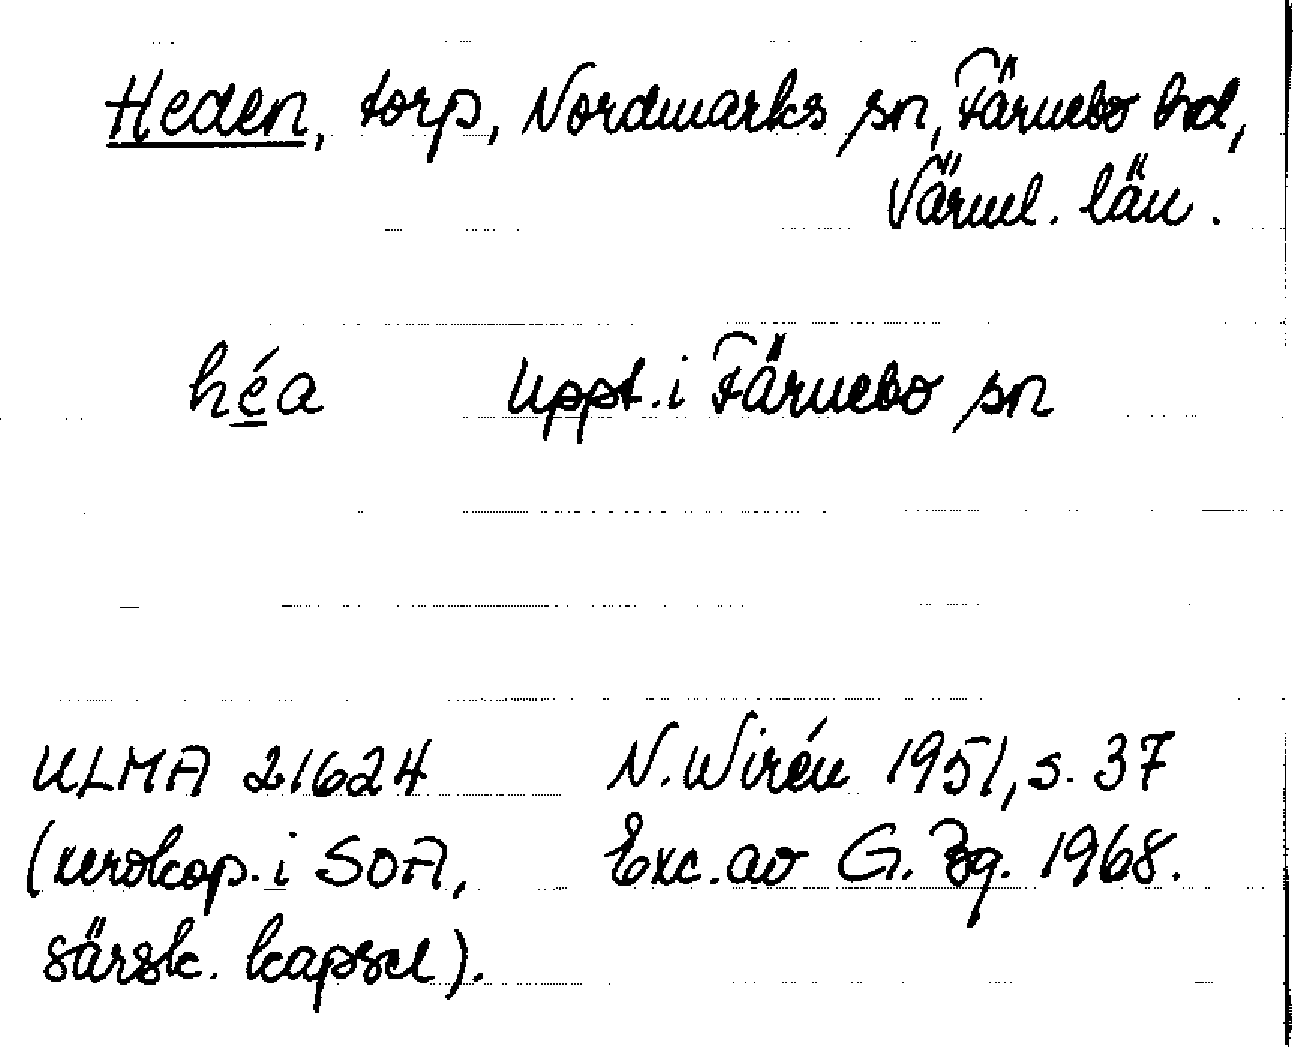 Heden, torp, Nordmarks sn, Färnebo hd,
Värml. län.
héa Uppt. i Färnebo sn
ULMA 21624 N. Wirén 1951, s. 37
(xerokop. i SOA, Exc. av G. Bg. 1968.
särsk. kapsel).